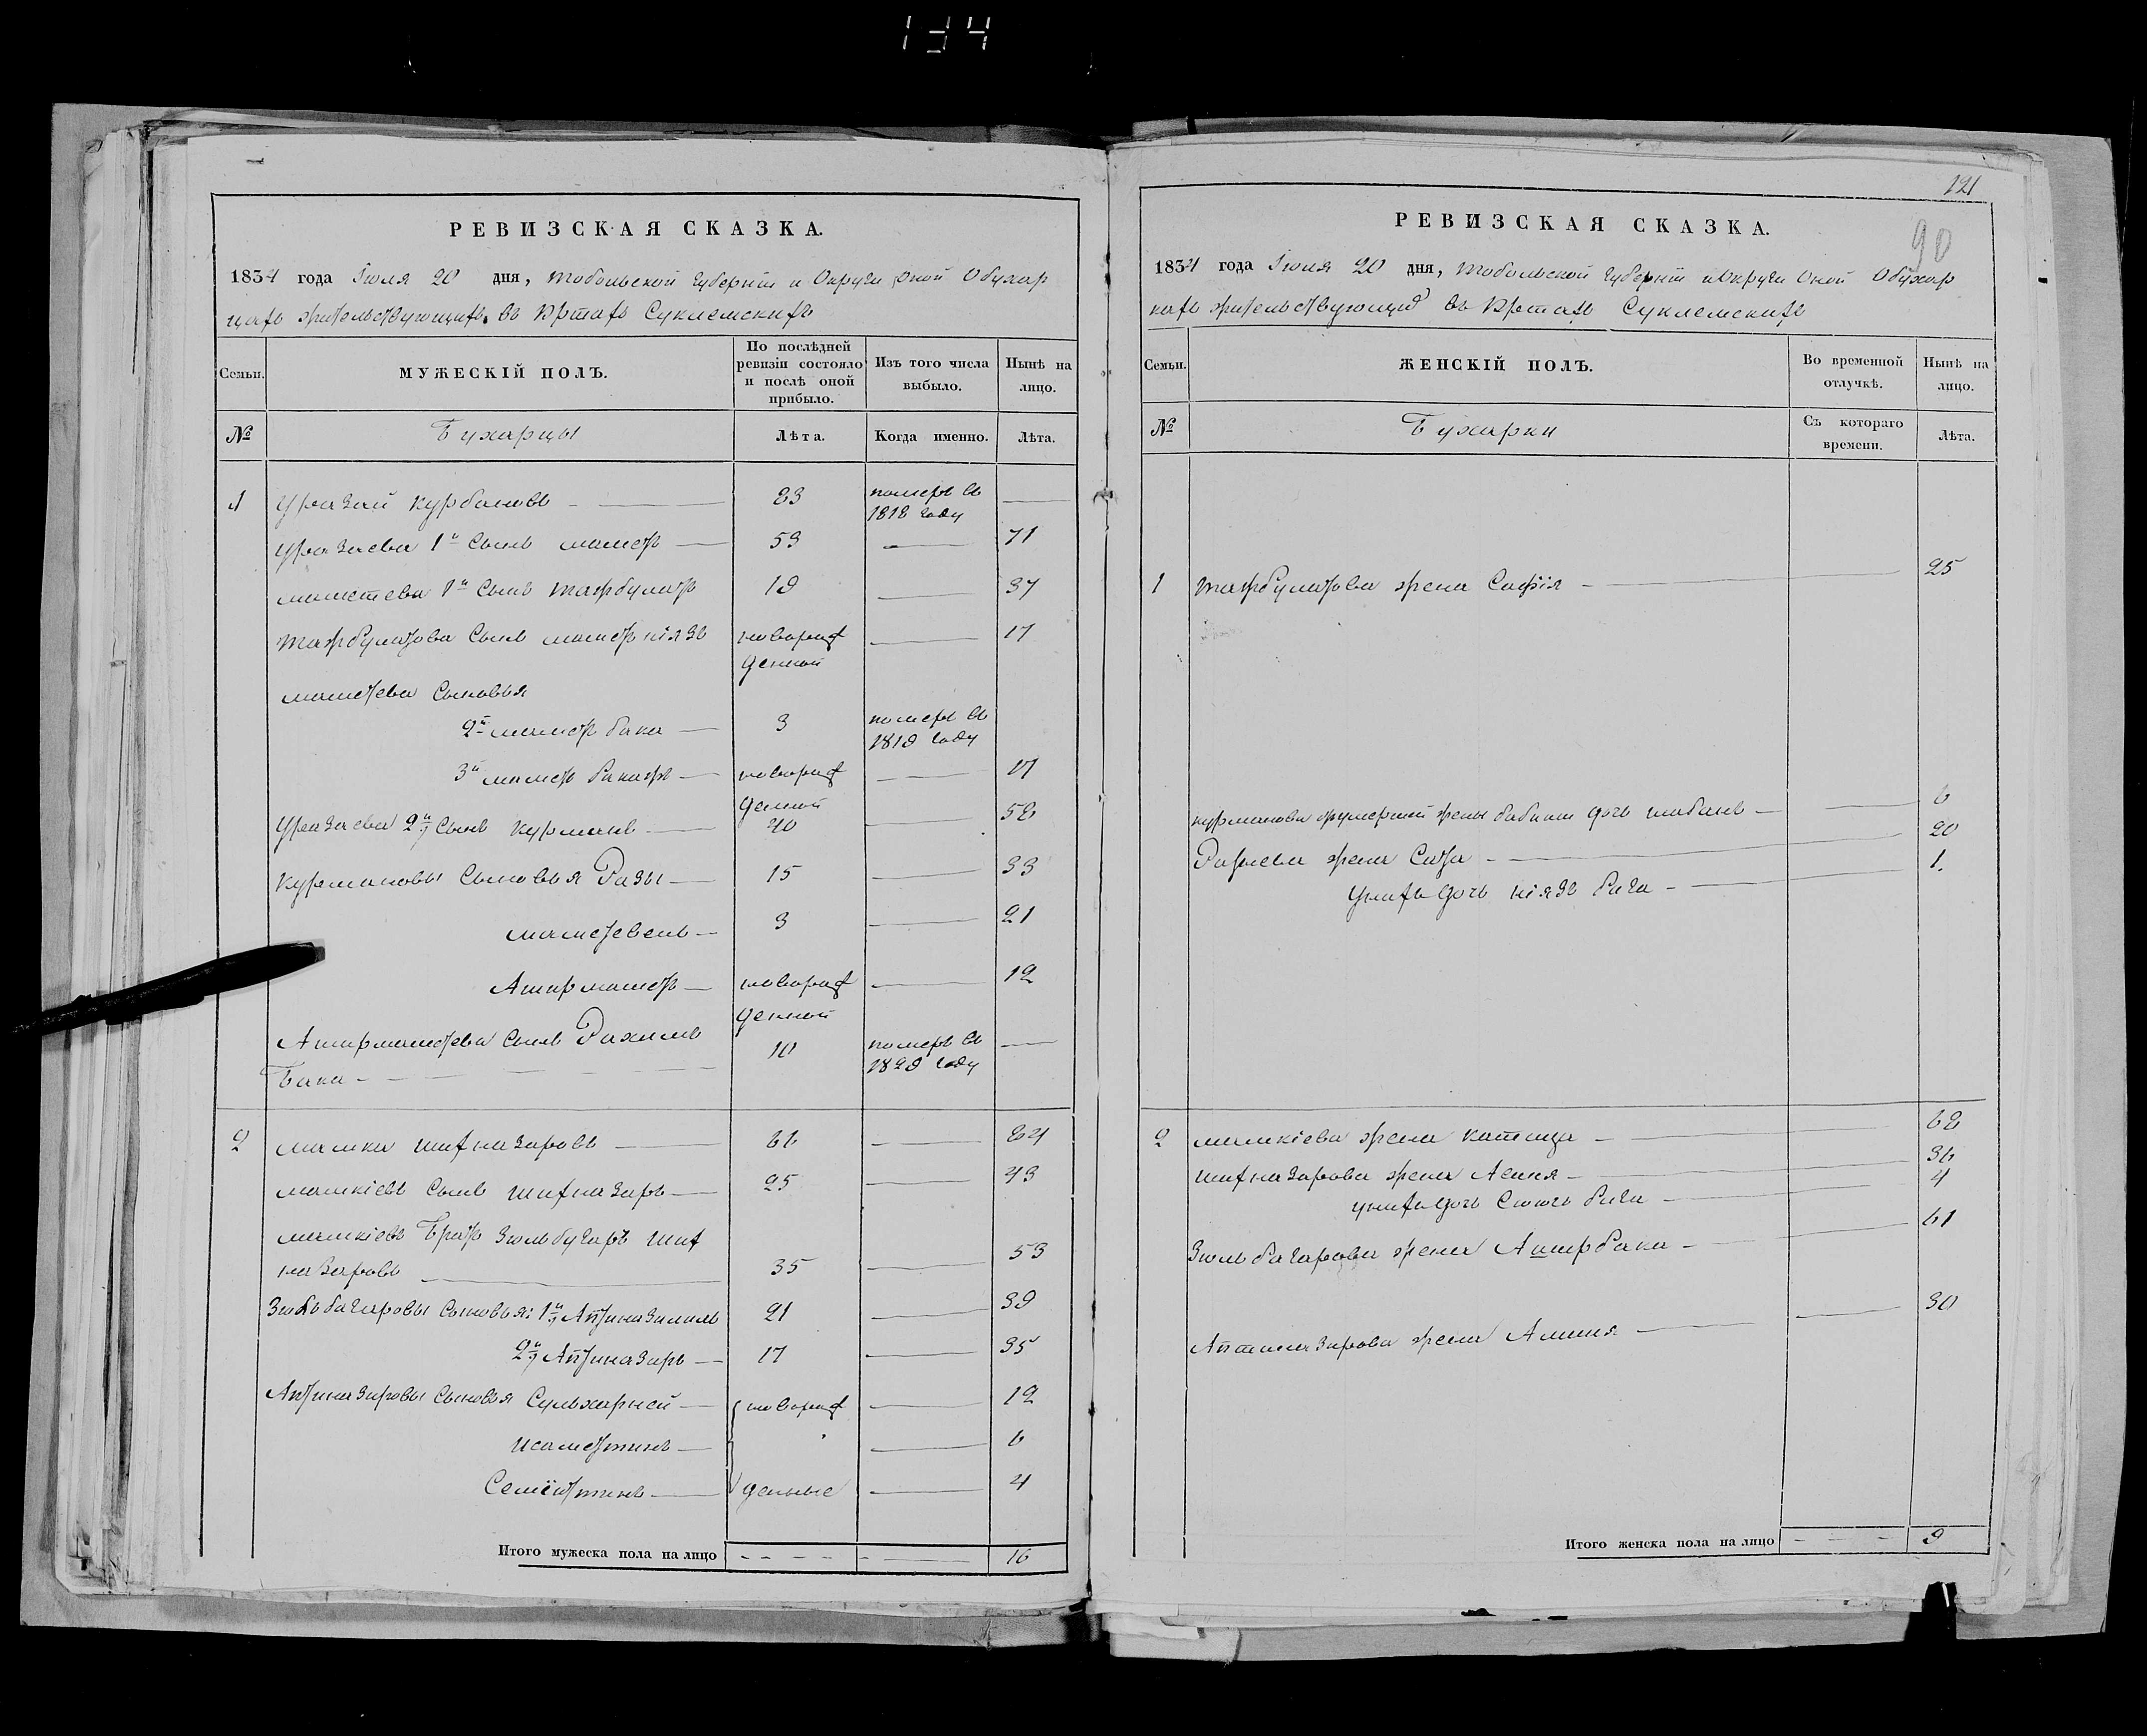 134
РЕВИЗСКАЯ СКАЗКА.
1834 года Іюля 20 дня, Тобольской губерніи и Округи оной Обухар
цахъ жительствующихъ въ Юртахъ Суклемскихъ
Семьи.
МУЖЕСКІЙ ПОЛЪ.
По послѣдней ревизіи состояло и послѣ оной прибыло.
Изъ того числа выбыло.
Нынѣ на лицо.
№
Бухарцы
Лѣта.
Когда именно.
Лѣта.
1 Уразай Курбановъ 83 померъ въ 1818 году
Уразаева 1й сынъ маметъ 53 71
маметева 1й сынъ таҗбулатъ 19 37
сынъ маметъ ніязъ новорож
денной 17
маметева сыновья
2й маметъ бака 3 померъ въ 1819 году
3й маметъ новорож
денной 17
Уразаева 2й сынъ Курманъ 40 58
Курмановы сыновья Разы 15 33
3 21
Аширъ маметъ новорож
денной 12
Аширмаметева сынъ Рахимъ
Бака 10 померъ въ 1829 году
2 мамки шихназаровъ 66 84
мамкіевъ сынъ шихназаръ 25 43
мамкіевъ братъ Зюльбугаръ ших
назаровъ 35 53
сыновья: 1й 21 39
2й Аптиназаръ 17 35
Аптиназаровы сыновья новорож 12
6
денные 4
Итого мужеска пола на лицо 16
121
90
РЕВИЗСКАЯ СКАЗКА.
1834 года Іюля 20 дня, Тобольской губерніи и Округи оной Обухар
кахъ жительствующихъ въ Юртахъ Суклемскихъ
Семьи.
ЖЕНСКІЙ ПОЛЪ.
Во временной отлучкѣ.
Нынѣ на лицо.
№
Бухарки
Съ котораго времени.
Лѣта.
1 жена Сафія 25
Курманова умершей жены дочь 6
жена 20
у нихъ дочь ніязъ бига 1.
2 мамкіева жена 68
шихназарова жена 36
у нихъ дочь Сююзъ бига 4
жена Аширбака 61
Аптиназарова жена Амина 30
Итого женска пола на лицо 9